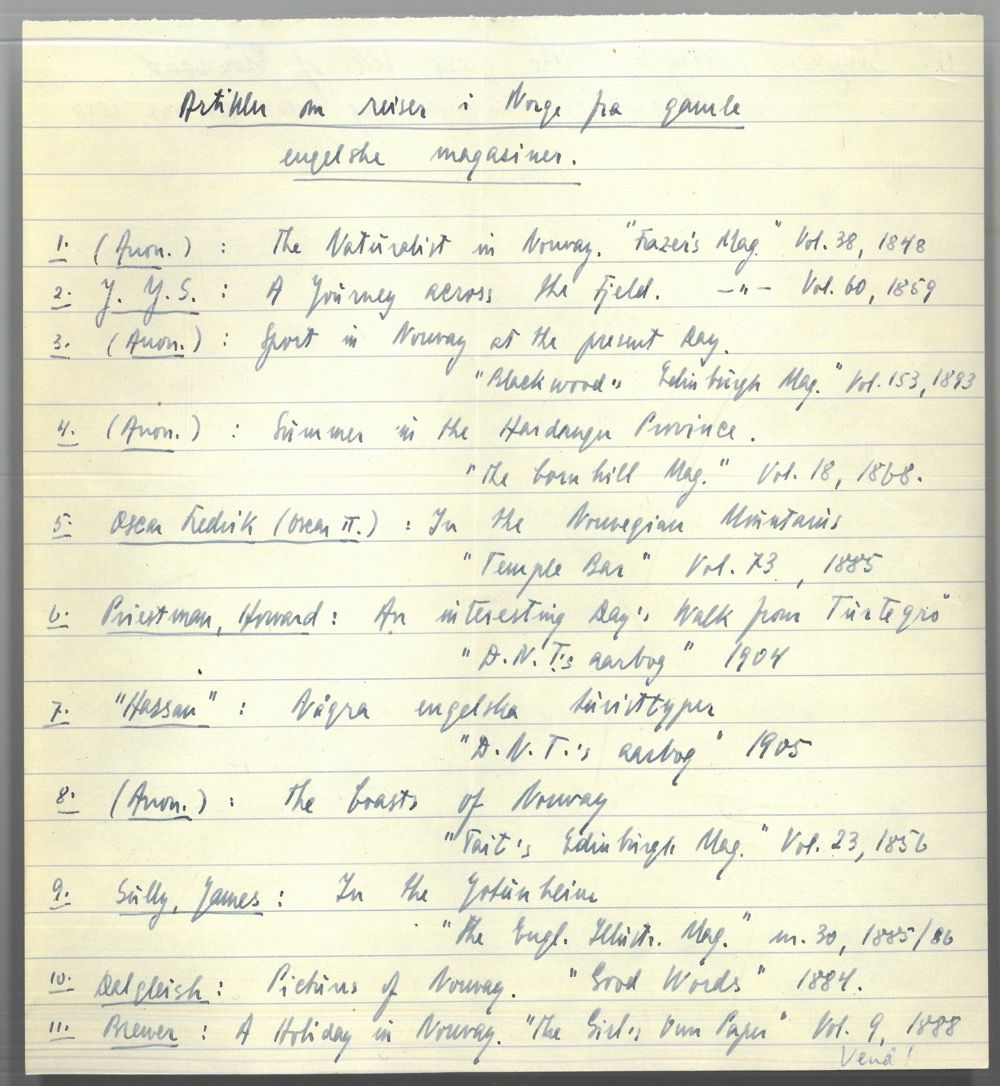 Artikler om reiser i Norge fra gamle
engelske magasiner.
1. (Anon.) : The Naturalist in Norway. "Frazer's Mag." Vol. 38, 1848
2. Y. Y. S. : A Journey across the Fjeld. —"— Vol. 60, 1859
3. (Anon.) : Sport in Norway at the present Day.
"Blackwood's Edinburgh Mag." Vol. 153, 1893
4. (Anon.) : Summer in the Hardanger Province.
"The Cornhill Mag." Vol. 18, 1868.
5. Oscar Fredrik (Oscar II.) : In the Norwegian Mountains
"Temple Bar" Vol. 73, 1885
6. Priestman, Howard : An interesting Day's Walk from Turtegrö
"D.N.T.'s aarbog" 1904
7. "Hassan" : Några engelska turisttyper
"D.N.T.'s aarbog" 1905
8. (Anon.) : The Coasts of Norway
"Tait's Edinburgh Mag." Vol. 23, 1856
9. Sully, James : In the Yotunheim
"The Engl. Illustr. Mag." nr. 30, 1885/86
10. Dalgleish : Pictures of Norway. "Good Words" 1884.
11. Brewer : A Holiday in Norway. "The Girl's Own Paper" Vol. 9, 1888
Vend!